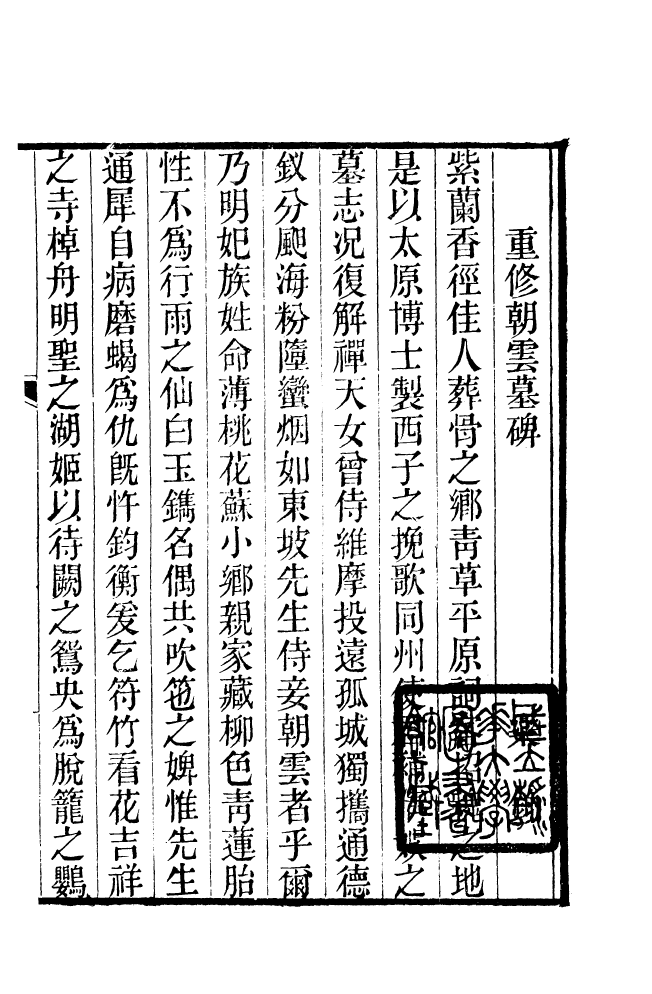 重修朝雲墓碑
紫蘭香徑佳人葬骨之鄉靑草平原詞之地
是以太原博士製西子之挽歌同州使之
墓志况復解禪天女曾侍維摩投遠孤城獨攜通德
釵分颶海粉墮蠻烟如東坡先生侍妾朝雲者乎爾
乃明妃族姓命薄桃花蘇小鄉親家藏柳色靑蓮胎
性不爲行雨之仙白玉鐫名偶共吹箎之婢惟先生
通犀自病磨蝎爲仇旣忤鈞衡爰乞符竹看花吉祥
之寺棹舟明聖之湖姬以待闕之鴛央爲脫籠之鸚